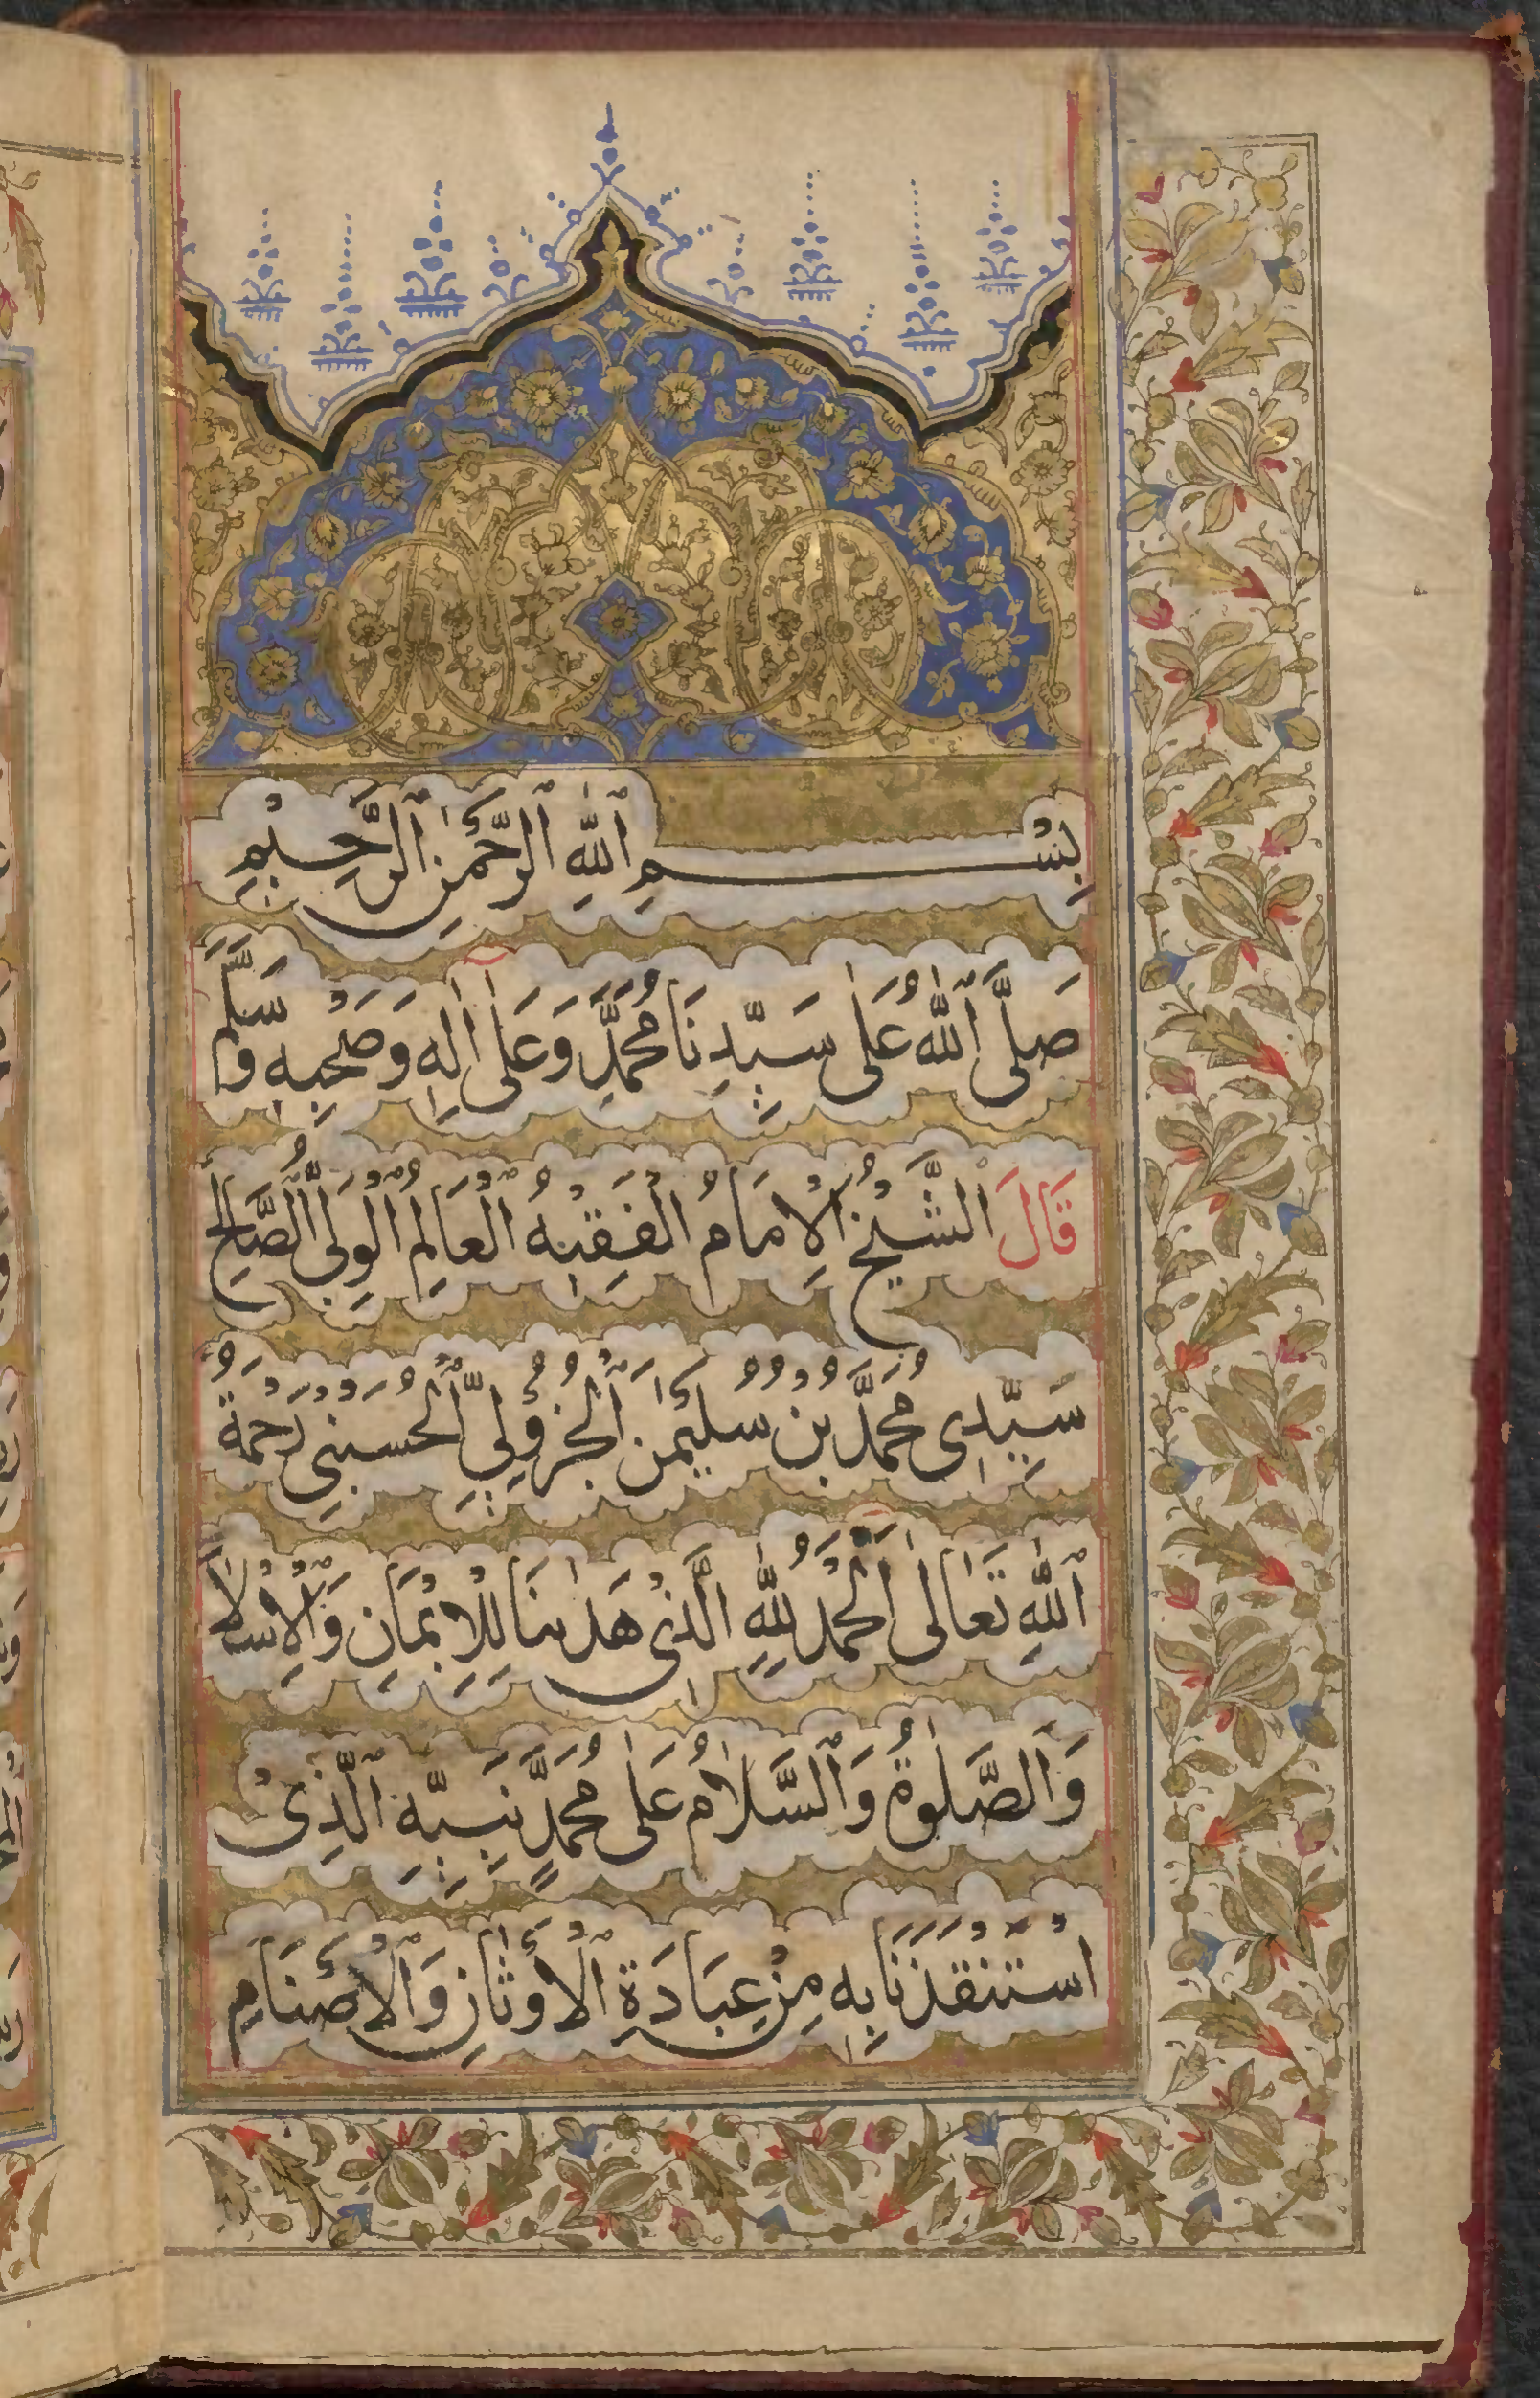 بِسْمِ ٱللّٰهِ ٱلرَّحْمٰنِ ٱلرَّحِيْمِ
صَلَّى ٱللّٰهُ عَلٰى سَيِّدِنَا مُحَمَّدٍ وَعَلٰى اٰلِهٖ وَصَحْبِهٖ وَسَلَّمَ
قَالَ ٱلشَّيْخُ ٱلْاِمَامُ الْفَقِيْهُ ٱلْعَالِمُ ٱلْوَلِىُّ ٱلصَّالِحُ
سَيِّدِى مُحَمَّدُ بْنُ سُلَيْمٰنَ ٱلْجُزُوْلِيُّ ٱلْحُسَيْنِى رَحْمَةُ
ٱللّٰهِ تَعَالٰى اَلْحَمْدُ لِلّٰهِ الَّذِىْ هَدٰىنَا لِلْاِيْمَانِ وَٱلْاِسْلَامِ
وَٱلصَّلٰوةُ وَٱلسَّلَامُ عَلٰى مُحَمَّدٍ نَبِيِّهِ ٱلَّذِىْ
اسْتَنْقَذَنَا بِهٖ مِنْ عِبَادَةِ ٱلْأَوْثَانِ وَٱلْأَصْنَامِ